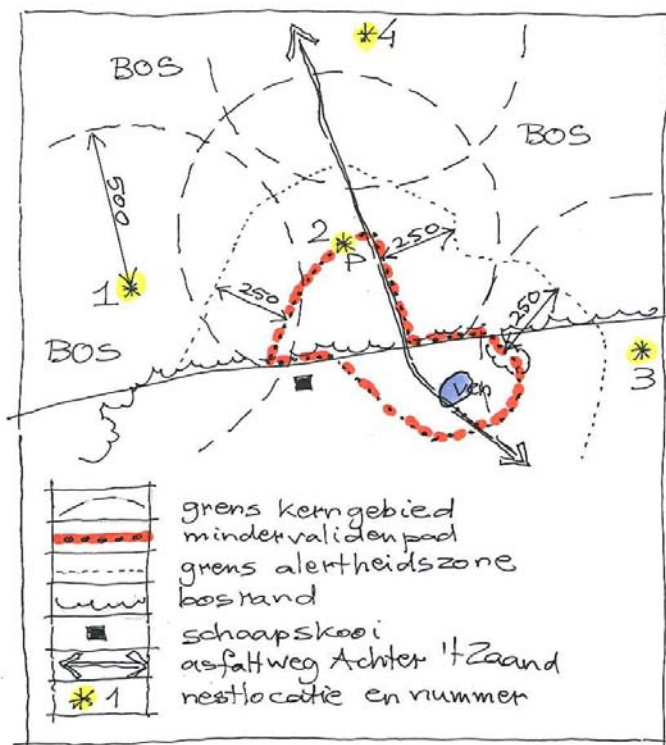 4
BOS
BOS
500
2
P
250
1
250
250
BOS
3
ven
grens kerngebied
mindervalidenpad
grens alertheidszone
bosrand
schaapskooi
asfaltweg Achter 't Zaand
1 nestlocatie en nummer